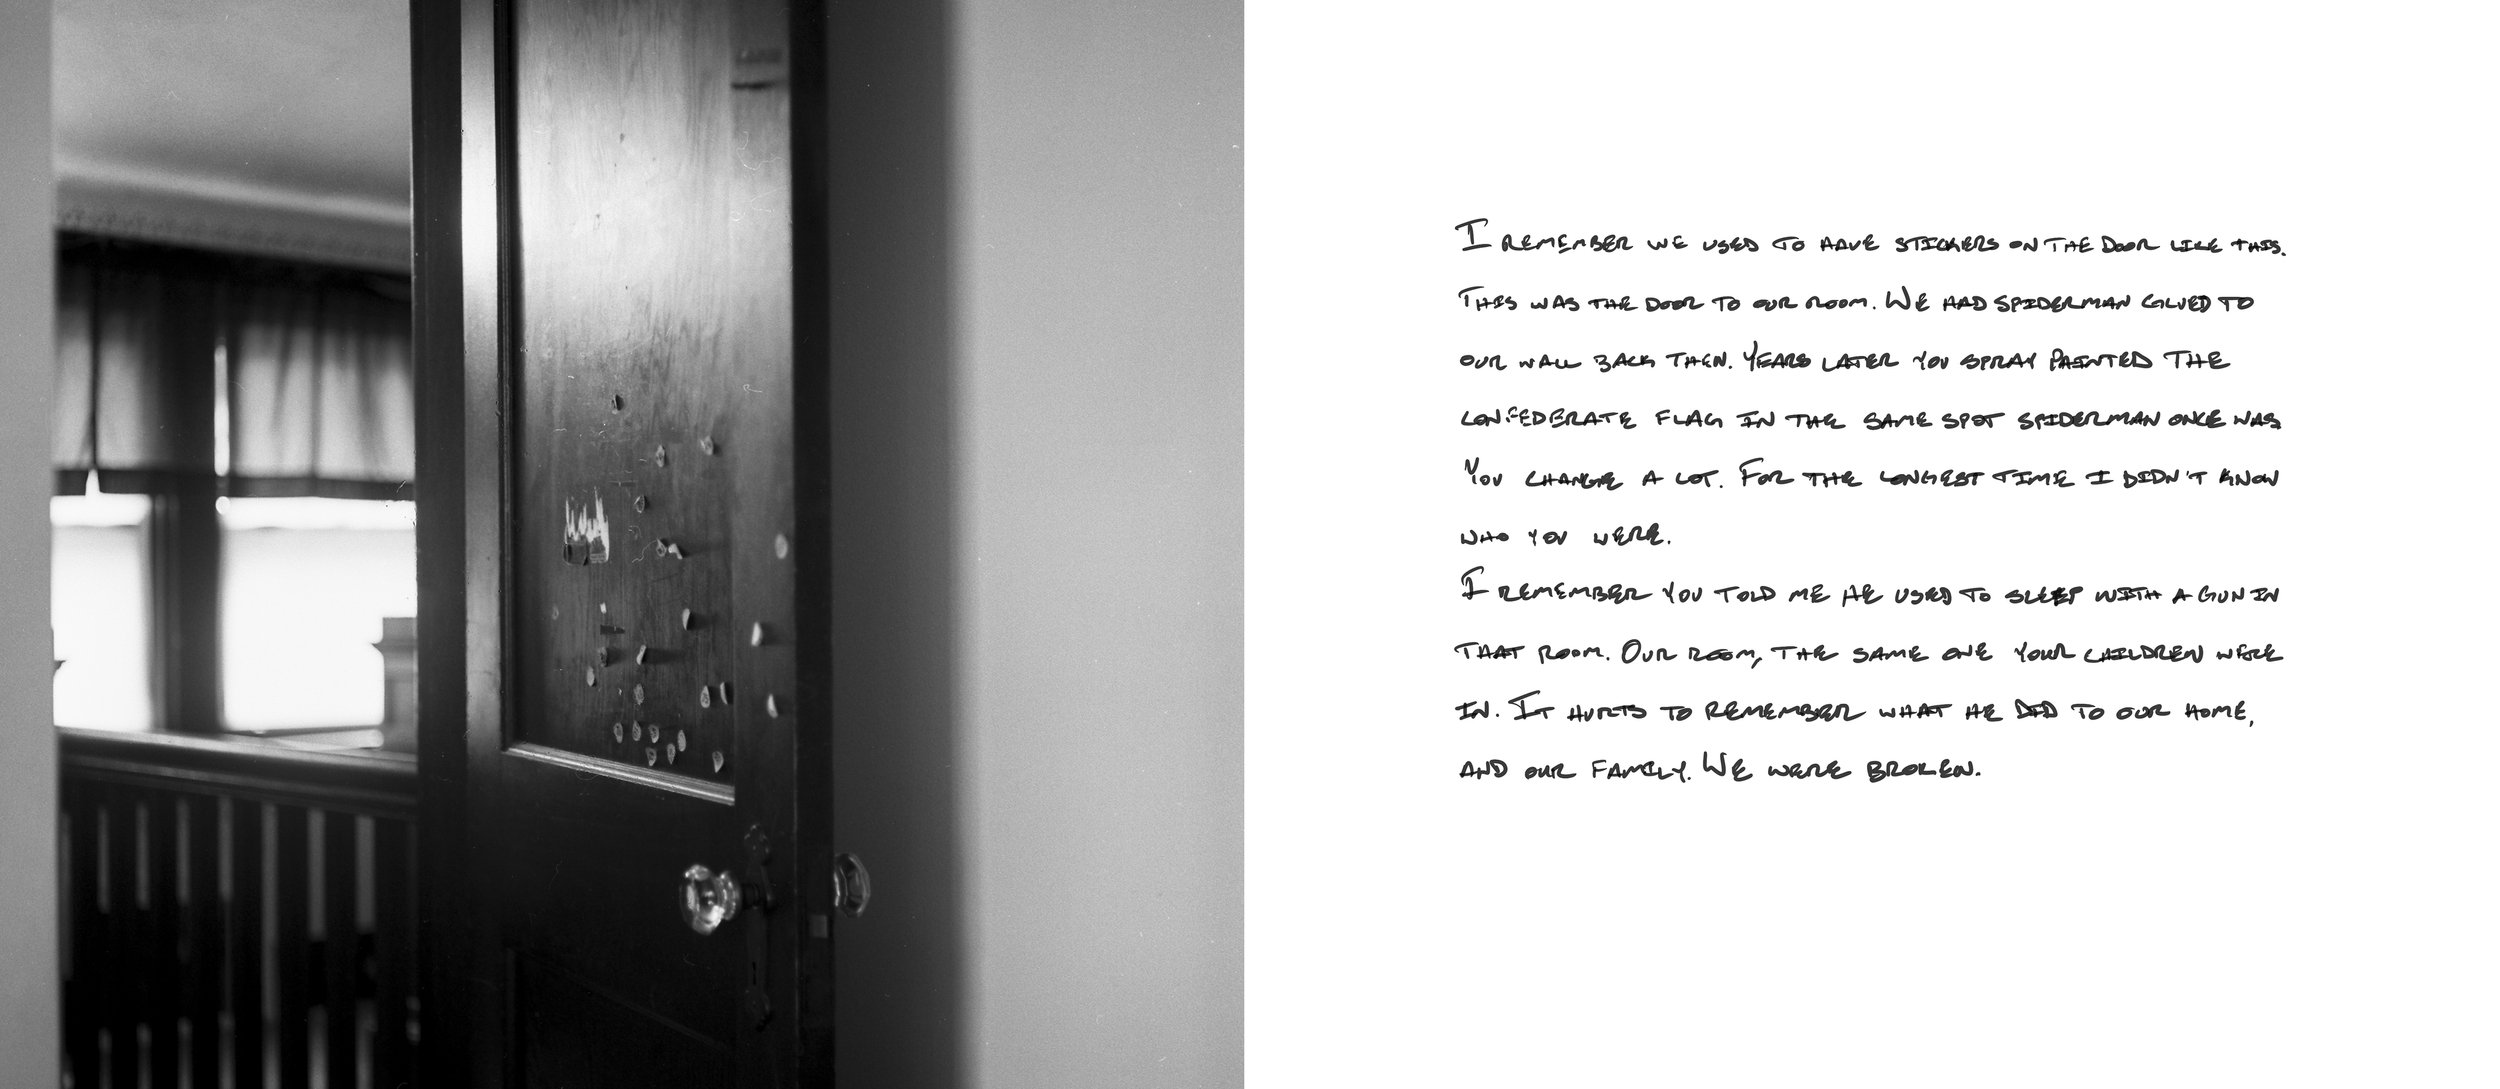 I REMEMBER WE USED TO HAVE STICKERS ON THE DOOR LIKE THIS.
THIS WAS THE DOOR TO OUR ROOM. WE HAD SPIDERMAN GLUED TO
OUR WALL BACK THEN. YEARS LATER YOU SPRAY PAINTED THE
CONFEDERATE FLAG IN THE SAME SPOT SPIDERMAN ONCE WAS
YOU CHANGE A LOT. FOR THE LONGEST TIME I DIDN'T KNOW
WHO YOU WERE.
I REMEMBER YOU TOLD ME HE USED TO SLEEP WITH A GUN IN
THAT ROOM. OUR ROOM, THE SAME ONE YOUR CHILDREN WERE
IN. IT HURTS TO REMEMBER WHAT HE DID TO OUR HOME,
AND OUR FAMILY. WE WERE BROKEN.